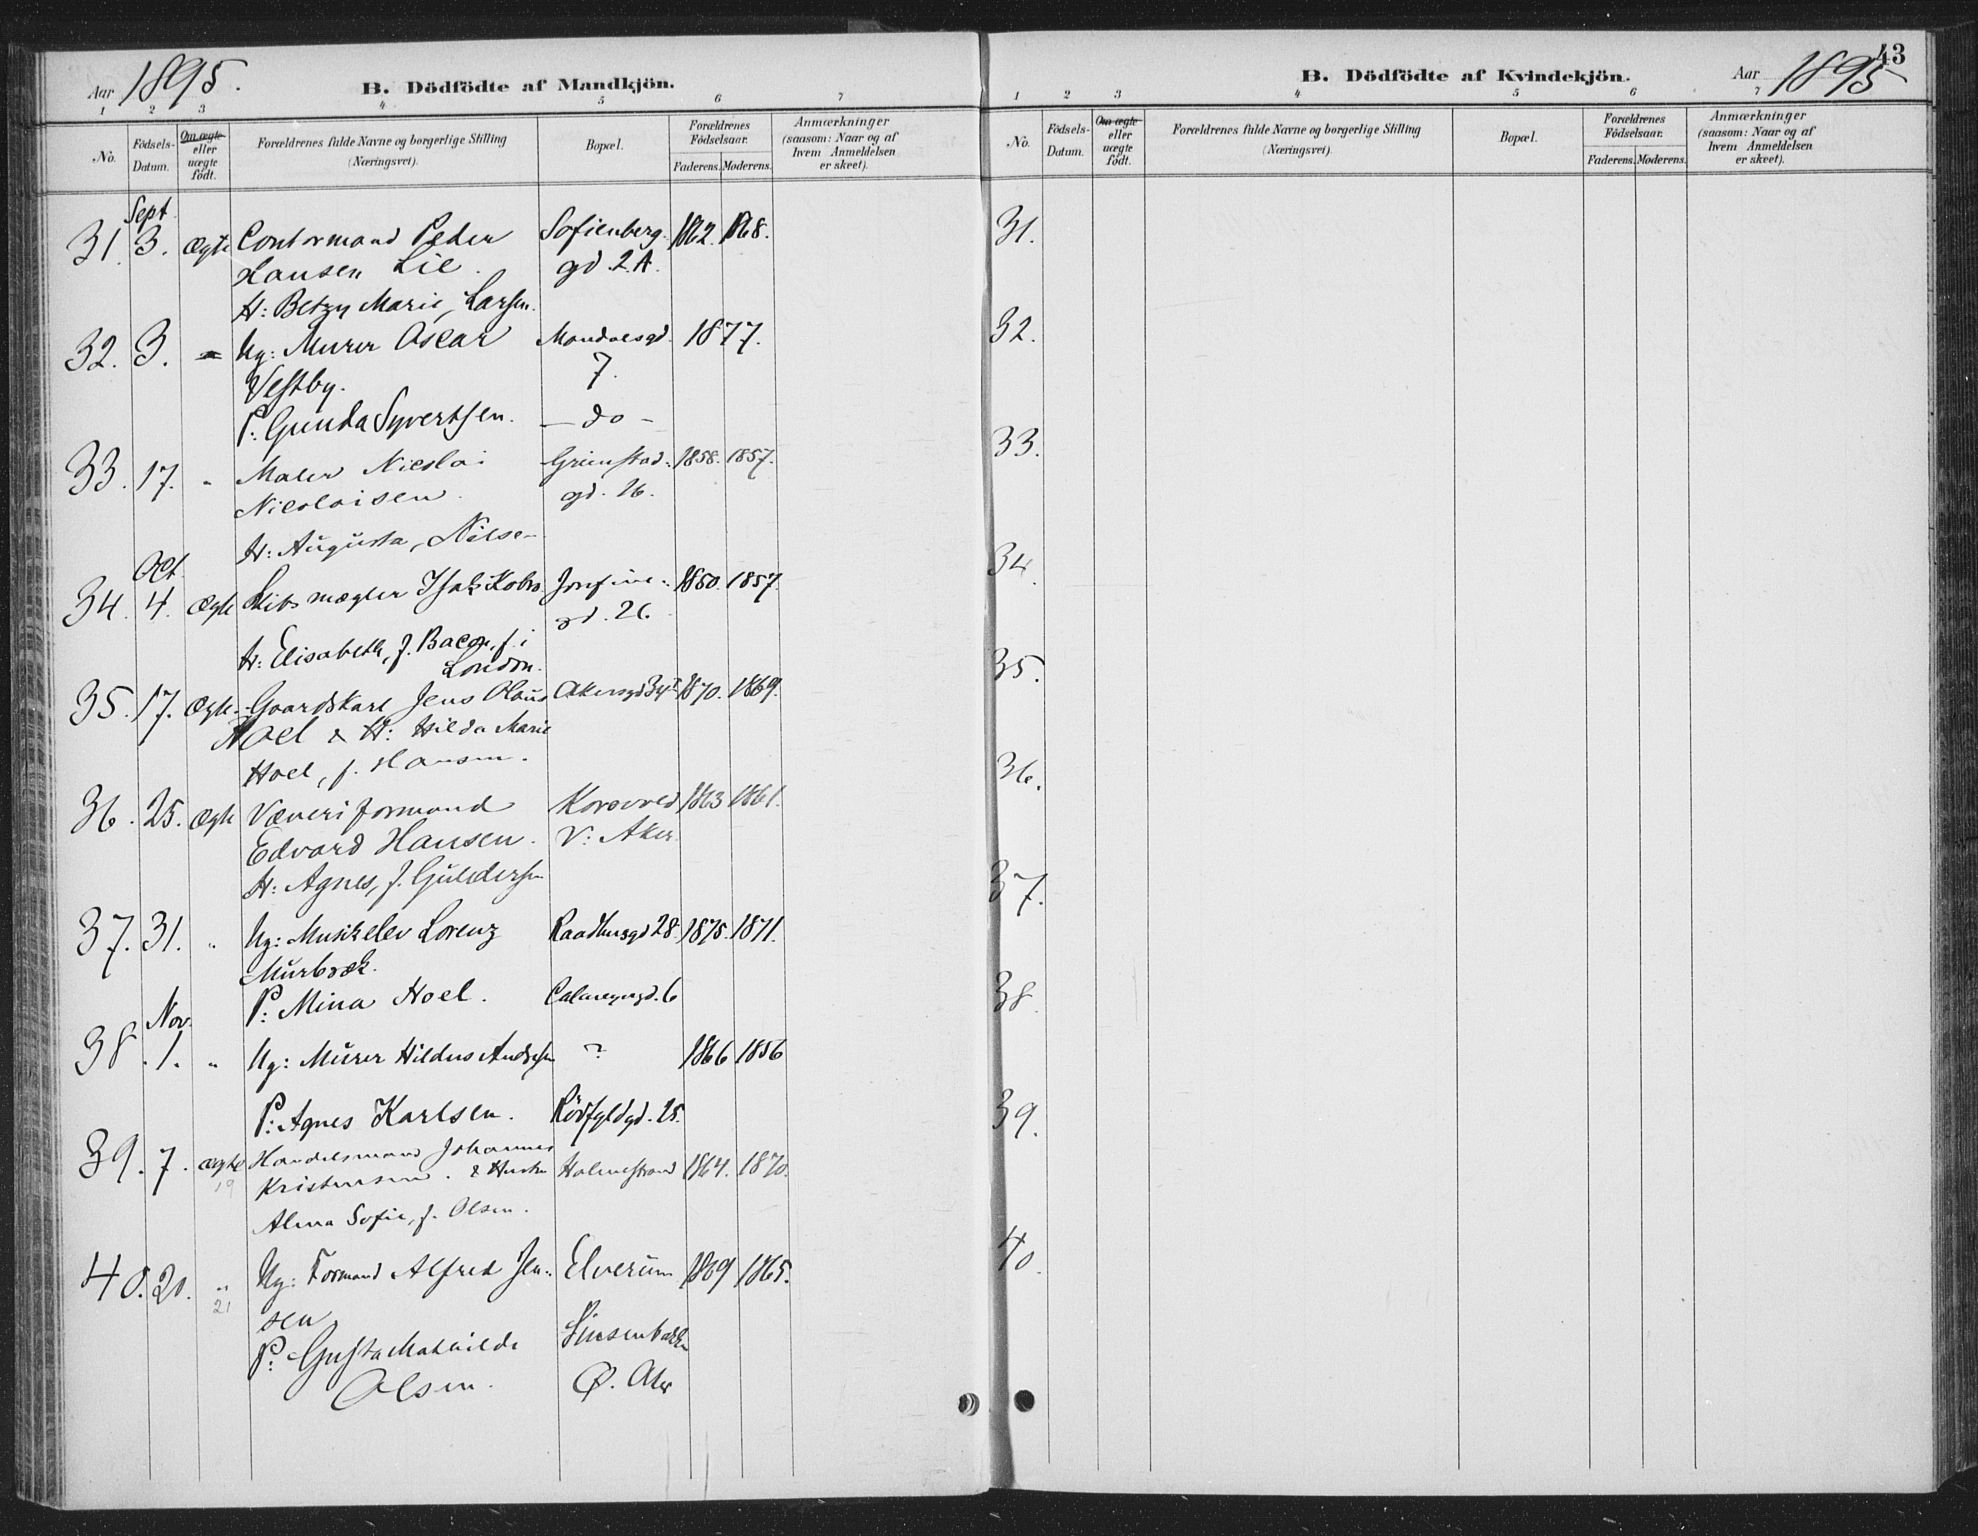 Aar 1895.
B. Dödfödte af Mandkjön.
1 2 3 4 5 6 7
No.
Födsels-Datum.
Om ægte eller uægte födt.
Forældrenes fulde Navne og borgerlige Stilling (Næringsvei).
Bopæl.
Forældrenes Födselsaar.
Faderens. Moderens.
Anmærkninger (saasom: Naar og af hvem Anmeldelsen er skeet).
Sept.
31. 3. Ægte Contormand Peder Sofienberg- 1862. 1868.
Hansen Lie. gd. 2A.
H: Betzy Marie, Larsen.
32. 3. Ug: Murer Oscar Mandalsgd. 1877.
Vestby. 7.
P: Gunda Syvertsen. — do —
33. 17. " Maler Nicolai Grimstad- 1858. 1857.
Nicolaisen. gd. 26.
H: Augusta, Nilsen
Oct.
34. 4. Ægte Skibsmægler Isak Kobro Josefine- 1850. 1857.
gd. 26.
H: Elisabeth, f. Bacon, f. i
London.
35. 17. Ægte. Gaardskarl Jens Olaus Akersgd 34 1870. 1869.
Hoel & H: Hilda Marie
Hoel, f. Hansen.
36. 25. Ægte Væveriformand 1863 1861.
Edvard Hansen. V: Aker.
H: Agnes, f. Guldersen
37. 31. " Ug: Musikelev Lorenz Raadhusgd 28. 1875. 1871.
Murbræk.
P: Mina Hoel. Calmeyersgd. 6
Nov.
38. 1. " Ug: Murer Hildus Andresen ? 1866 1856
P: Agnes Karlsen. Rödfyldgd. 25.
39. 7. ægte Handelsmand Johannes
19 Kristensen. & Hustru Holmestrand 1864. 1870.
Alma Sofie, f. Olsen.
40. 20. " Ug: Formand Alfred Jen- Elverum 1869 1865.
21 sen
P: Gusta Mathilde Sinsenbakken
Olsen. Ø. Aker
43
B. Dödfödte af Kvindekjön.
Aar 1895
1 2 3 4 5 6 7
No.
Födsels-Datum.
Om ægte eller uægte födt.
Forældrenes fulde Navne og borgerlige Stilling (Næringsvei).
Bopæl.
Forældrenes Födselsaar.
Faderens. Moderens.
Anmærkninger (saasom: Naar og af hvem Anmeldelsen er skeet).
31.
32.
33.
34.
35.
36.
37.
38.
39.
40.